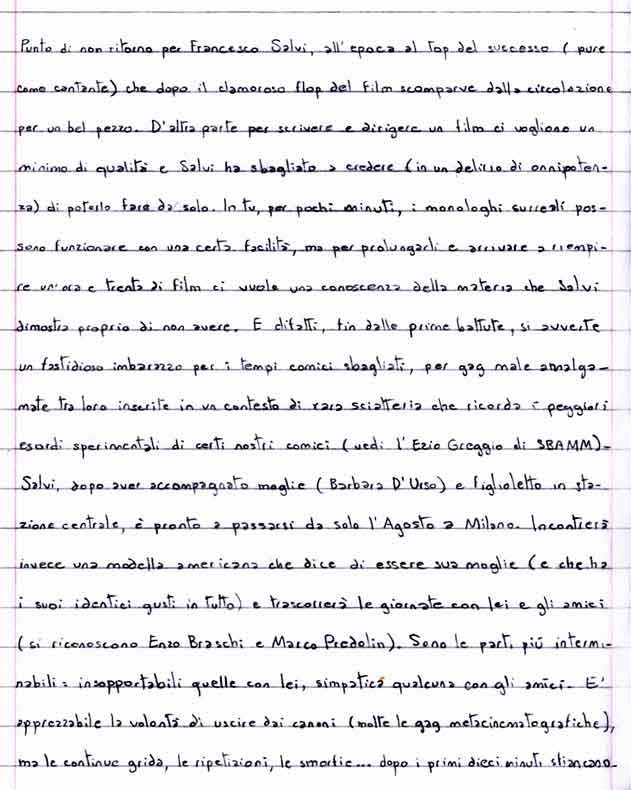 Punto di non ritorno per Francesco Salvi, all'epoca al top del successo (pure
come cantante) che dopo il clamoroso flop del film scomparve dalla circolazione
per un bel pezzo. D'altra parte per scrivere e dirigere un film ci vogliono un
minimo di qualità e Salvi ha sbagliato a credere (in un delirio di onnipoten-
za) di poterlo fare da solo. In tv, per pochi minuti, i monologhi surreali pos-
sono funzionare con una certa facilità, ma per prolungarli e arrivare a riempi-
re un'ora e trenta di film ci vuole una conoscenza della materia che Salvi
dimostra proprio di non avere. E difatti, fin dalle prime battute, si avverte
un fastidioso imbarazzo per i tempi comici sbagliati, per gag male amalga-
mate tra loro inserite in un contesto di rara sciatteria che ricorda i peggiori
esordi sperimentali di certi nostri comici (vedi l'Ezio Greggio di SBAMM).
Salvi, dopo aver accompagnato moglie (Barbara D'Urso) e figlioletto in sta-
zione centrale, è pronto a passarsi da solo l'Agosto a Milano. Incontrerà
invece una modella americana che dice di essere sua moglie (e che ha
i suoi identici gusti in tutto) e trascorrerà le giornate con lei e gli amici
(si riconoscono Enzo Braschi e Marco Predolin). Sono le parti più intermi-
nabili: insopportabili quelle con lei, simpatica qualcuna con gli amici. E'
apprezzabile la volontà di uscire dai canoni (molte le gag metacinematografiche),
ma le continue grida, le ripetizioni, le smorfie... dopo i primi dieci minuti stancano.